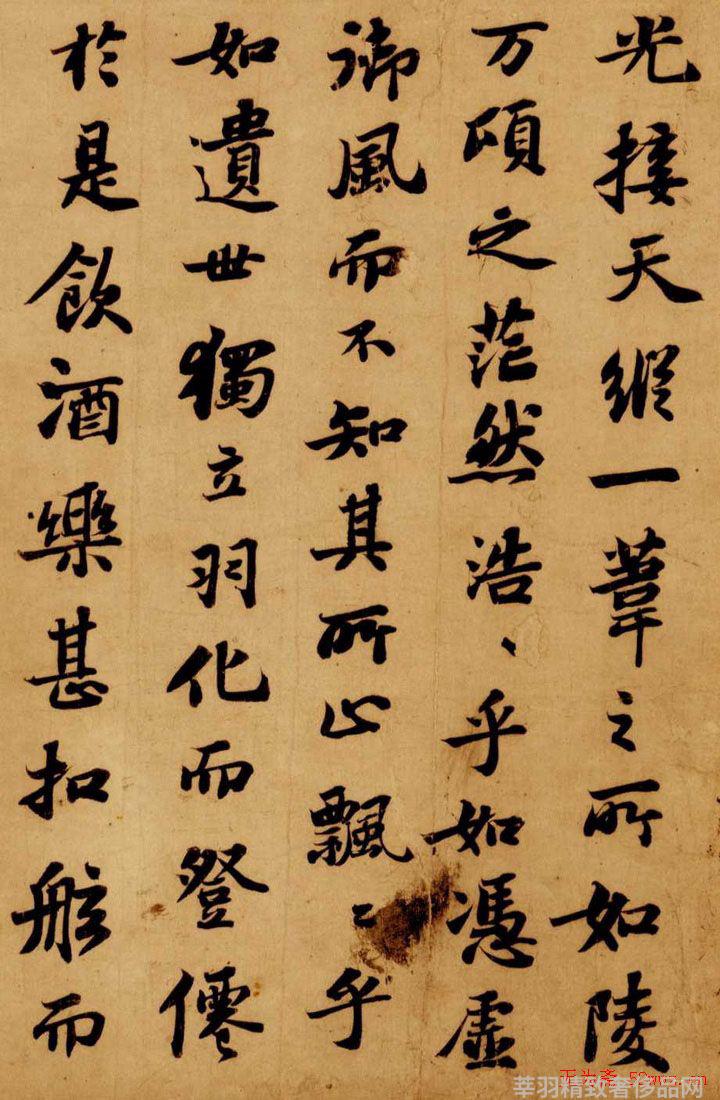 光接天縱一葦之所如陵
万頃之茫然浩〻乎如憑虛
御風而不知其所止飄〻乎
如遺世獨立羽化而登僊
於是飲酒樂甚扣舷而
莘羽精致奢侈品网